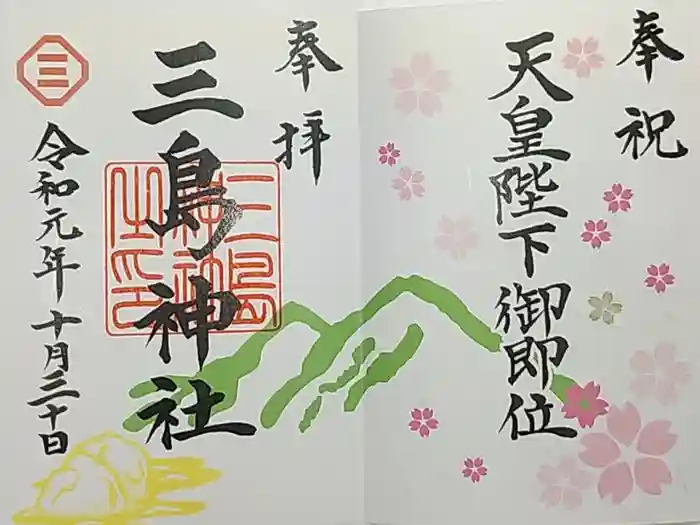 奉祝
天皇陛下御即位
奉拝
三島神社
三島神社之印
令和元年十月三十日
三